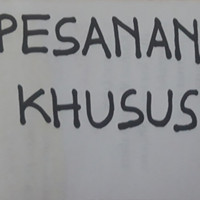 PESANAN
KHUSUS